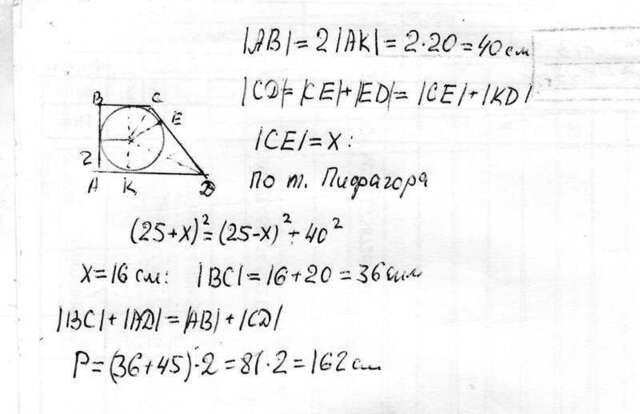 |AB| = 2|AK| = 2·20 = 40 см
|CD| = |CE| + |ED| = |CE| + |KD|
B C
E
|CE| = x:
2
A K D
по т. Пифагора
(25+x)² = (25-x)² + 40²
x = 16 см: |BC| = 16 + 20 = 36 см
|BC| + |AD| = |AB| + |CD|
P = (36+45)·2 = 81·2 = 162 см